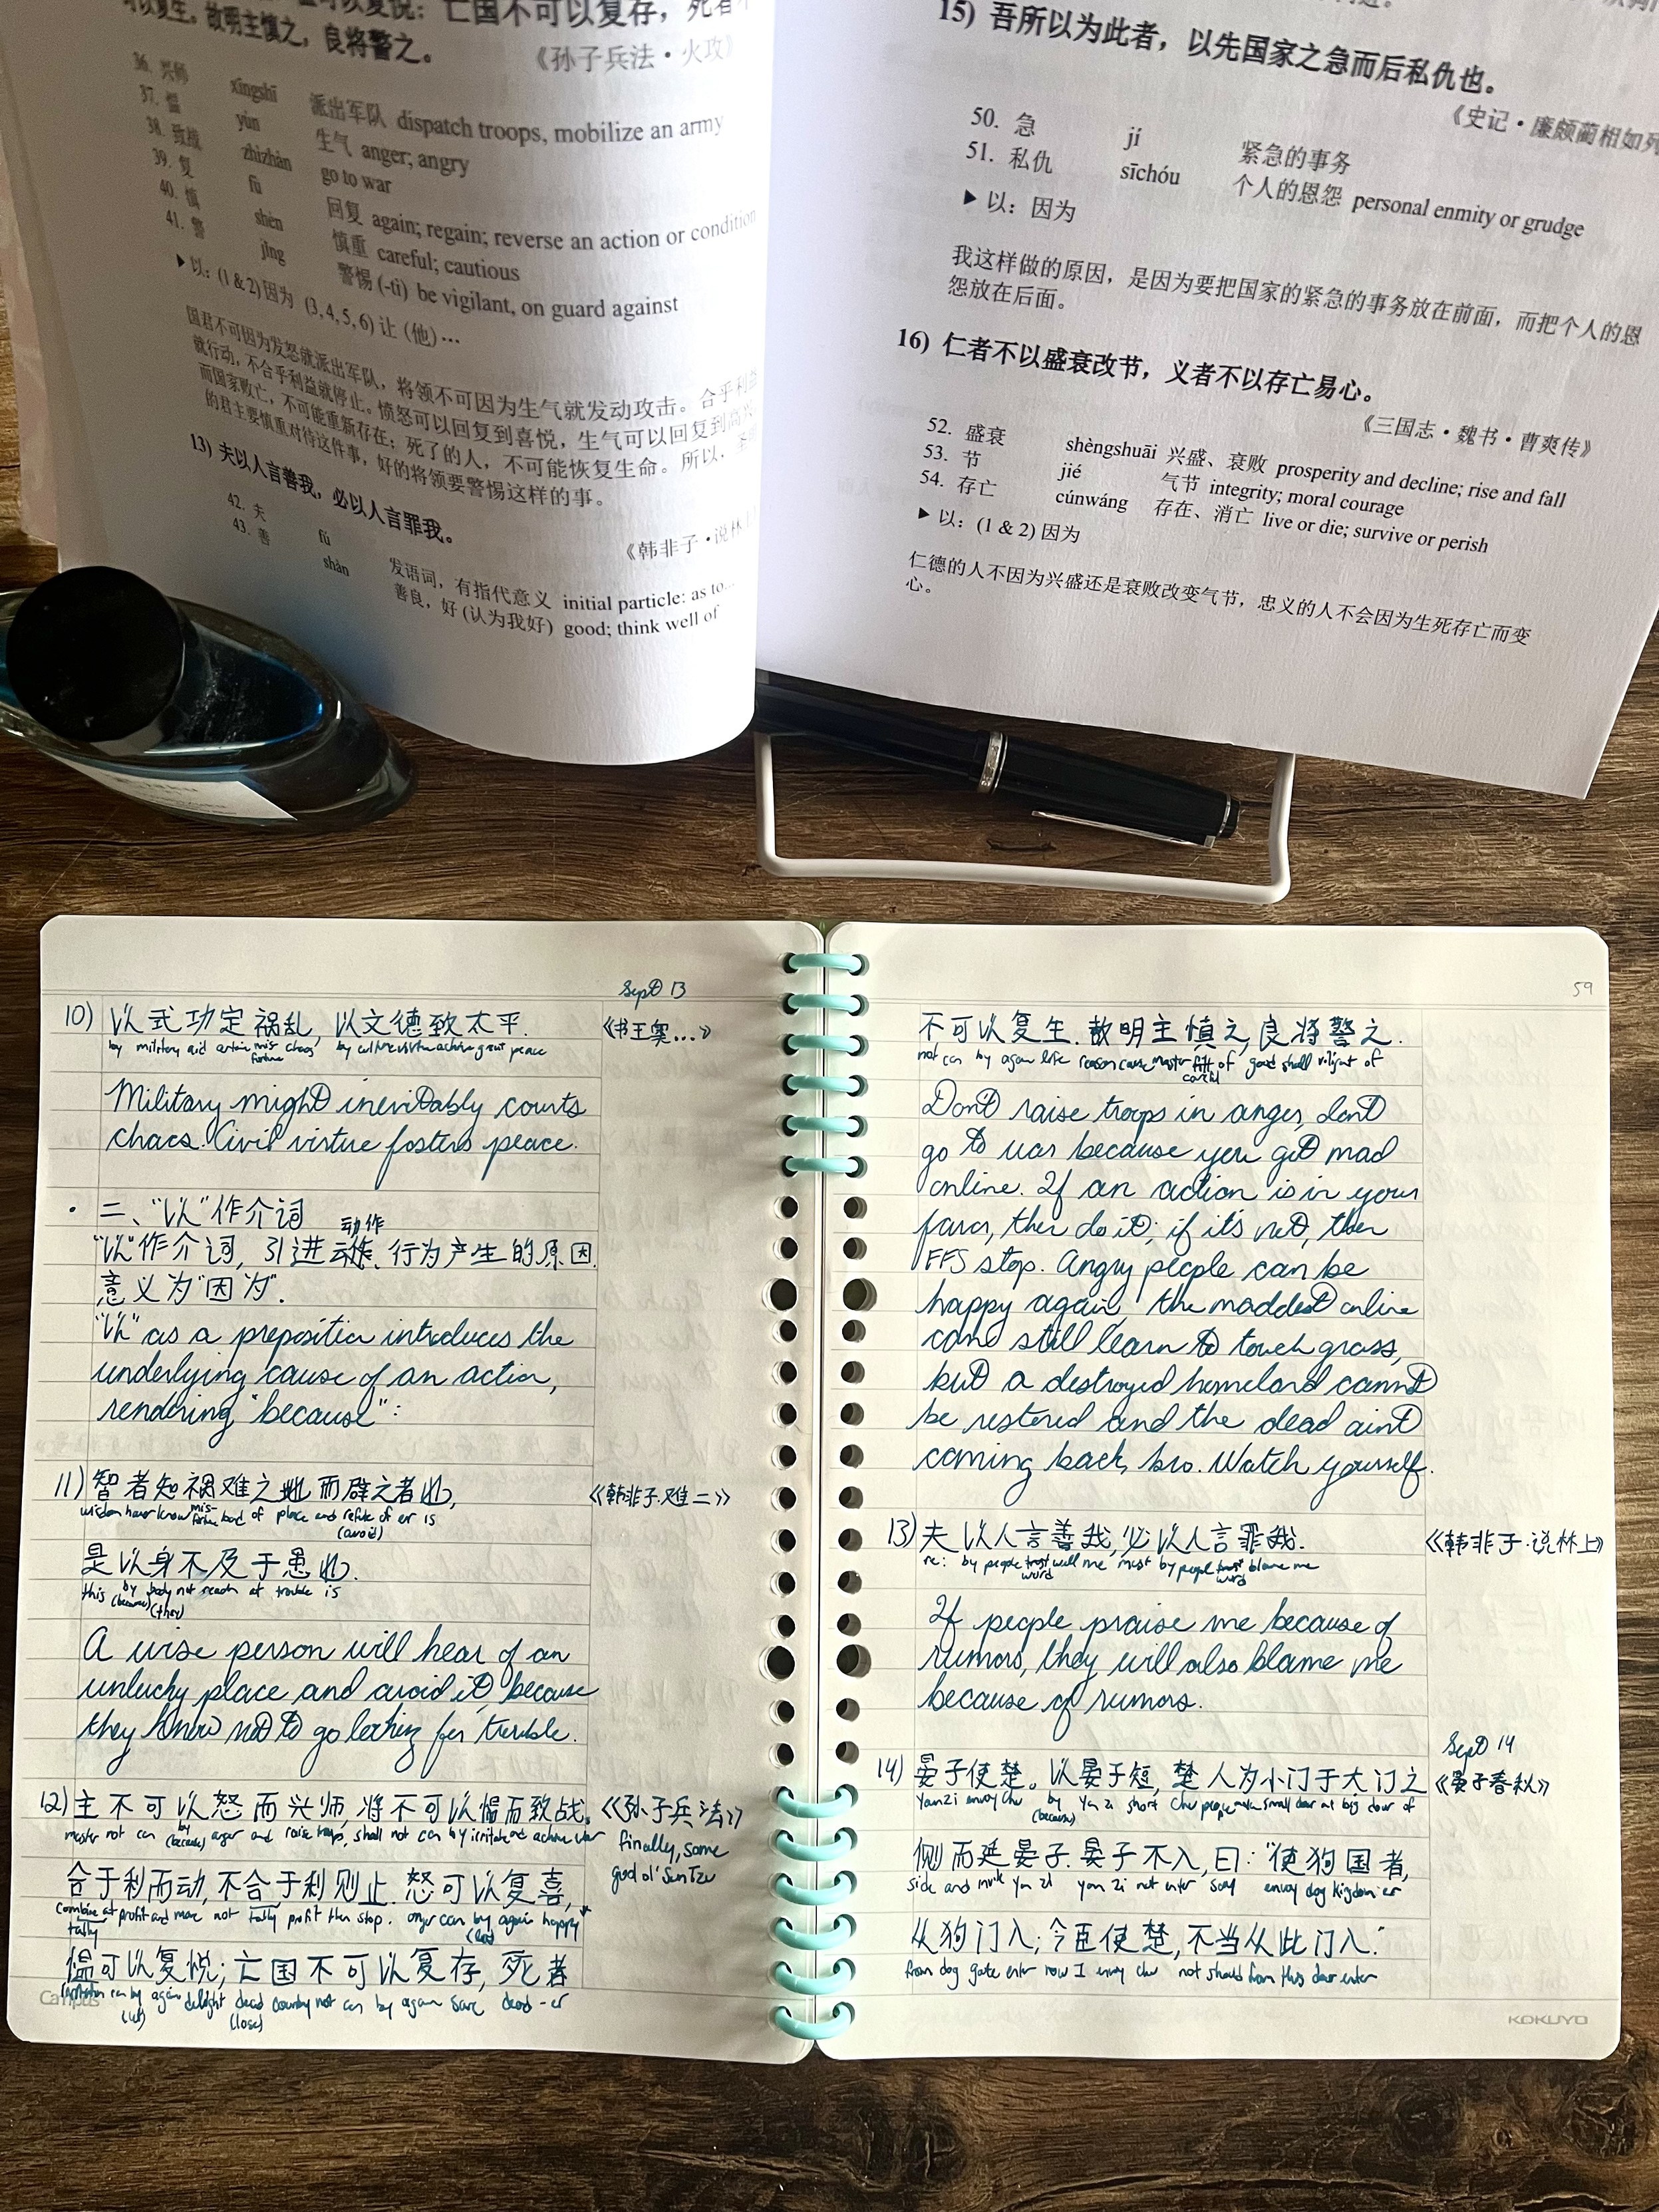 可以复悦；亡国不可以复存，死者不
可以复生。故明主慎之，良将警之。
《孙子兵法·火攻》
36. 兴师 xīngshī 派出军队 dispatch troops, mobilize an army
37. 愠 yùn 生气 anger; angry
38. 致战 zhìzhàn go to war
39. 复 fù 回复 again; regain; reverse an action or condition
40. 慎 shèn 慎重 careful; cautious
41. 警 jǐng 警惕 (-tì) be vigilant, on guard against
▶以：(1 & 2) 因为 (3, 4, 5, 6) 让（他）…
国君不可因为发怒就派出军队，将领不可因为生气就发动攻击。合乎利益
就行动，不合乎利益就停止。愤怒可以回复到喜悦，生气可以回复到高兴
而国家败亡，不可能重新存在；死了的人，不可能恢复生命。所以，圣明
的君主要慎重对待这件事，好的将领要警惕这样的事。
13) 夫以人言善我，必以人言罪我。
《韩非子·说林
42. 夫 fú 发语词，有指代意义 initial particle: as to...
43. 善 shàn 善良，好 (认为我好) good; think well of
15) 吾所以为此者，以先国家之急而后私仇也。
《史记·廉颇蔺相如列
50. 急 jí 紧急的事务
51. 私仇 sīchóu 个人的恩怨 personal enmity or grudge
▶ 以：因为
我这样做的原因，是因为要把国家的紧急的事务放在前面，而把个人的恩
怨放在后面。
16) 仁者不以盛衰改节，义者不以存亡易心。
《三国志·魏书·曹爽传》
52. 盛衰 shèngshuāi 兴盛、衰败 prosperity and decline; rise and fall
53. 节 jié 气节 integrity; moral courage
54. 存亡 cúnwáng 存在、消亡 live or die; survive or perish
▶ 以：(1 & 2) 因为
仁德的人不因为兴盛还是衰败改变气节，忠义的人不会因为生死存亡而变
心。
Sept 13
10) 以式功定祸乱, 以文德致太平. 《书王窦...》
by military aid certain mis fortune chaos by culture virtue achieve great peace
Military might inevitably courts
chaos. Civil virtue fosters peace.
• 二、"以"作介词
动作
"以"作介词, 引进动作、行为产生的原因.
意义为"因为".
"以" as a preposition introduces the
underlying cause of an action,
rendering "because":
11) 智者知祸难之地而辟之者也, 《韩非子·难二》
wisdom haver know mis-fortune bad of place and refute of er is
(avoid)
是以身不及于患也.
this by body not reach at trouble is
(because) (they)
A wise person will hear of an
unlucky place and avoid it because
they know not to go looking for trouble.
12) 主不可以怒而兴师, 将不可以愠而致战. 《孙子兵法》
master not can by (because) anger and raise troops, shall not can by irritated achieve war
finally, some
good ol' Sun Tzu
合于利而动, 不合于利则止. 怒可以复喜,
combine at profit and move not tally profit then stop. anger can by again happy
tally (let)
愠可以复悦; 亡国不可以复存, 死者
irritation can by again delight dead country not can by again save dead-er
(let) (lose)
Campus
59
不可以复生. 故明主慎之, 良将警之.
not can by again life reason cause master of good shall vigilant of
careful
Don't raise troops in anger, don't
go to war because you got mad
online. If an action is in your
favor, then do it; if it's not, then
FFS stop. Angry people can be
happy again, the maddest online
can still learn to touch grass,
but a destroyed homeland cannot
be restored and the dead ain't
coming back, bro. Watch yourself.
13) 夫以人言善我, 必以人言罪我. 《韩非子·说林上》
re: by people well me must by people blame me
word word
If people praise me because of
rumors, they will also blame me
because of rumors.
Sept 14
14) 晏子使楚。以晏子短, 楚人为小门于大门之 《晏子春秋》
Yanzi envoy Chu by Yanzi short Chu people make small door at big door of
(because)
侧而延晏子. 晏子不入, 曰: "使狗国者,
side and invite Yanzi yanzi not enter say envoy dog kingdom er
从狗门入; 今臣使楚, 不当从此门入."
from dog gate enter now I envoy chu not should from this door enter
KOKUYO